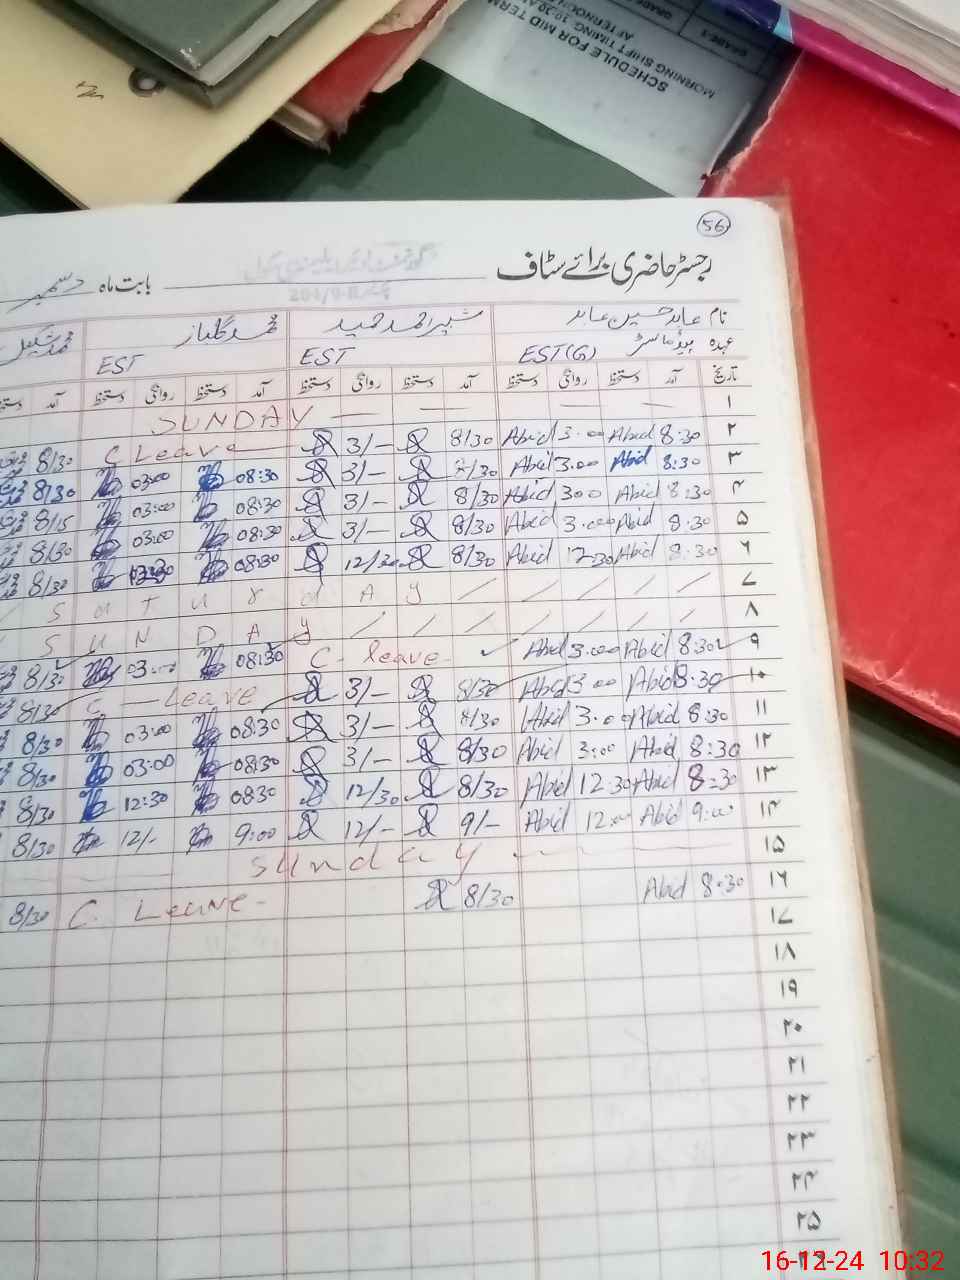 SCHEDULE FOR MID TERM
MORNING SHIFT TIMING:
AFTERNOON
GRADE-1
56
رجسٹر حاضری برائے سٹاف
بابت ماہ دسمبر
نام عابد حسین عابد شبیر احمد حمید محمد گلباز محمد شکیل
عہدہ ہیڈ ماسٹر EST(G) EST EST
تاریخ آمد دستخط روانگی دستخط آمد دستخط روانگی دستخط آمد دستخط روانگی دستخط آمد
۱ SUNDAY
۲ 8:30 Abid 3.00 Abid 8/30 3/- C Leave 8/30
۳ 8:30 Abid 3.00 Abid 3/- 08:30 03:00 8/30
۴ 8:30 Abid 300 Abid 8/30 3/- 08:30 03:00 8/15
۵ 8:30 Abid 3.00 Abid 8/30 3/- 08:30 03:00 8/30
۶ 8:30 Abid 12:30 Abid 8/30 12/30 08:30 8/30
۷ SatUrdAy
۸ SUNDAy
۹ 8:30 Abid 3.00 Abid C- leave 08:30 03:00 8/30
۱۰ 8:30 Abid 3.00 Abid 8/30 3/- C - Leave 8/30
۱۱ 8:30 Abid 3.00 Abid 8/30 3/- 08:30 03:00 8/30
۱۲ 8:30 Abid 3:00 Abid 8/30 3/- 08:30 03:00 8/30
۱۳ 8:30 Abid 12.30 Abid 8/30 12/30 0830 12:30 8/30
۱۴ 9:00 Abid 12:00 Abid 9/- 12/- 9:00 12/- 8/30
۱۵ sunday
۱۶ 8:30 Abid 8/30 C. Leave- 8/30
۱۷
۱۸
۱۹
۲۰
۲۱
۲۲
۲۳
۲۴
۲۵
16-12-24 10:32